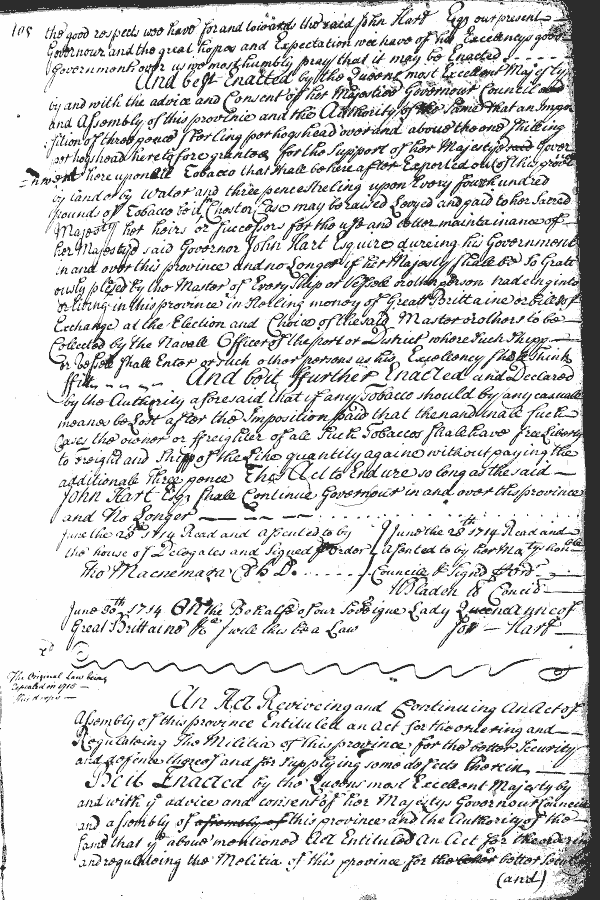 105
the good respects wee have for and towards the said John Hart Esqr our present
Governour and the great hopes and Expectation wee have of his Excellencys good
Government over us wee most humbly pray that it may be Enacted
And be it Enacted by the Queens most Excellent Majesty
by and with the advice and Consent of her Majestys Governour Council and
and Assembly of this province and the Authority of the Same that an Impo
sition of three pence sterling per hogshead over and above the one shilling
per hogshead heretofore granted for the Support of her Majestys said Gover
nment here upon all Tobacco that shall be here after Exported out of this province
by land or by Water and three pence sterling upon Every four hundred
pounds of Tobacco in Chest or Case may be raised Levyed and paid to her Sacred
Majesty her heirs or Successors for the use and better maintainance of
her Majestys said Governor John Hart Esquire dureing his Government
in and over this province and no Longer if her Majesty shall be so Grati
ously plesed by the Master of Every Ship or Vessele or other person tradeing into
or liveing in this province in sterling money of Great Brittaine or Bills of
Exchange at the Election and Choice of the said Master or others to be
Colected by the Navell Officer of the port or District where such Shipp
or Vessele shall Enter or such other persons as his Excellency shall think
ffitt And be it ffurther Enacted and Declared
by the Authority aforesaid that if any Tobacco should by any casuall
meanes be Lost after the Imposition paid that then and in all such
Cases the owner or ffreighter of all such Tobaccos shall have free Liberty
to freight and Ship of the Like quantity againe without paying the
additionall three pence This Act to Endure so long as the said
John Hart Esqr shall Continue Governour in and over this province
and No Longer
June the 28th 1714 Read and assented to by
the house of Delegates and Signed per Order
Tho Macnemara Cl h D
June the 28th 1714 Read and
assented to by her Matys honble
Councill & Signd per Ordr
WBladen Cl Concil
June 30th 1714 On the Behalfe of our Soveigne Lady Queen Anne of
Great Brittaine &c I will this be a Law Jon Hart
The Original Law being
Repealed in 1715
this dropd
An Act Reviveing and Continuing An Act of
Assembly of this province Entituled an Act for the ordering and
Regulateing the Militia of this province for the better Security
and defence thereof and for Supplying some defects therein
Be it Enacted by the Queens most Excellent Majesty by
and with ye advice and consent of her Majestys Governour Councill
and assembly of assembly of this province and the Authority of the
same that ye above mentioned Act Entituled An Act for the ordering
and regulateing the Melitia of this province for the better better
(and)